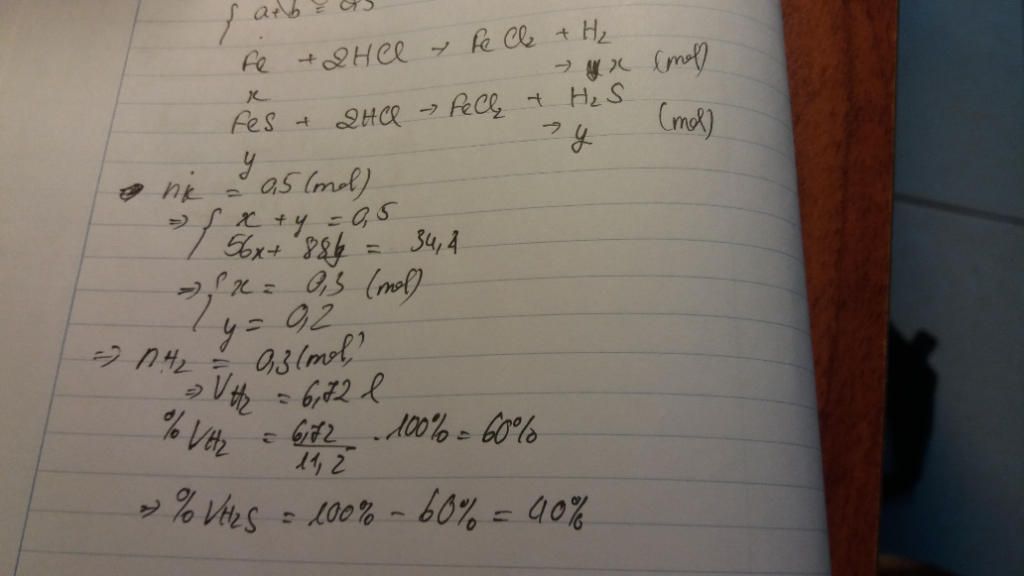 { a+b = 0,5
Fe + 2HCl → FeCl₂ + H₂
x → x (mol)
FeS + 2HCl → FeCl₂ + H₂S
y → y (mol)
nk = 0,5 (mol)
⇒ { x + y = 0,5
56x + 88y = 34,4
⇒ { x = 0,3 (mol)
y = 0,2
⇒ nH₂ = 0,3 (mol)
⇒ VH₂ = 6,72 l
% VH₂ = 6,72/11,2 . 100% = 60%
⇒ % VH₂S = 100% - 60% = 40%